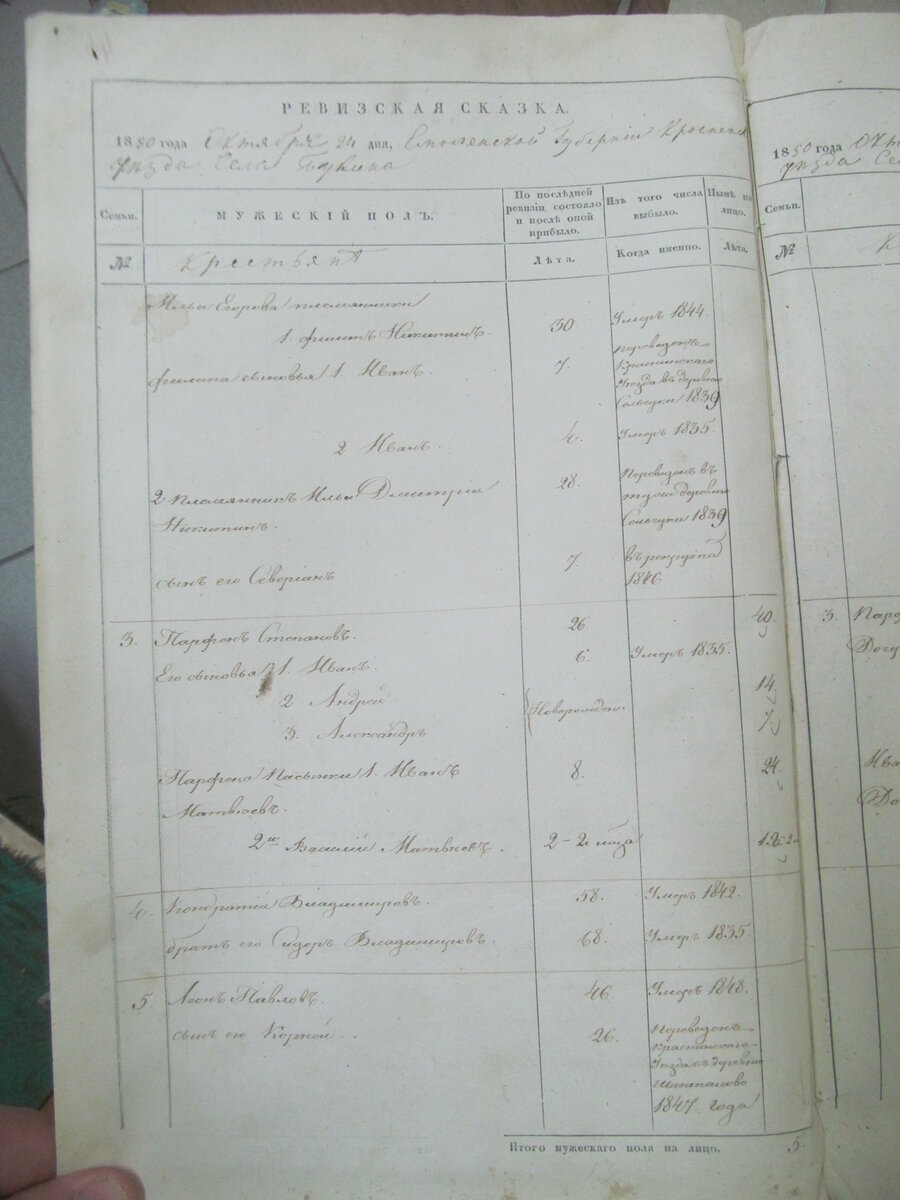 РЕВИЗСКАЯ СКАЗКА.
1850 года Октября 24 дня, Смоленской Губерніи Краснен
уезда Села
Семьи. МУЖЕСКІЙ ПОЛЪ. По последней ревизіи состояло и после оной прибыло. Изъ того числа выбыло. Ныне на лицо.
№ Крестьянъ Лѣта. Когда именно. Лѣта.
Ильи Егорова племянники
1. Филипъ Никитинъ. 30. Умеръ 1844.
Филипа сыновья 1. Иванъ. 7. переведенъ
Краснинскаго
Уезда въ деревню
1839
2 Иванъ. 4. Умеръ 1835.
2 Племянникъ Ильи Дмитрій 28. Переведенъ въ
Никитинъ. туже деревню
1839
сынъ его Северіанъ 7. въ рекруты
1846
3. Парфенъ Степановъ. 26 40.
Его сыновья 1. Иванъ. 6. Умеръ 1835.
2 Андрей Новорожден. 14.
3. Александръ 7.
Парфена Пасынки 1. Иванъ 8. 24.
Матвеевъ.
2й Василій Матвеевъ. 2-2 мца
4. Кондратій Владимировъ. 58. Умеръ 1842.
братъ его Сидоръ Владимировъ. 68. Умеръ 1835.
5. Леонъ Павловъ. 46 Умеръ 1848.
сынъ его Корней . . 26. Переведенъ
Краснинскаго
Уезда въ деревню
Шанталово
1847. года
Итого мужескаго пола на лицо. 5.
1850 года
уезда
Семьи.
№
3.